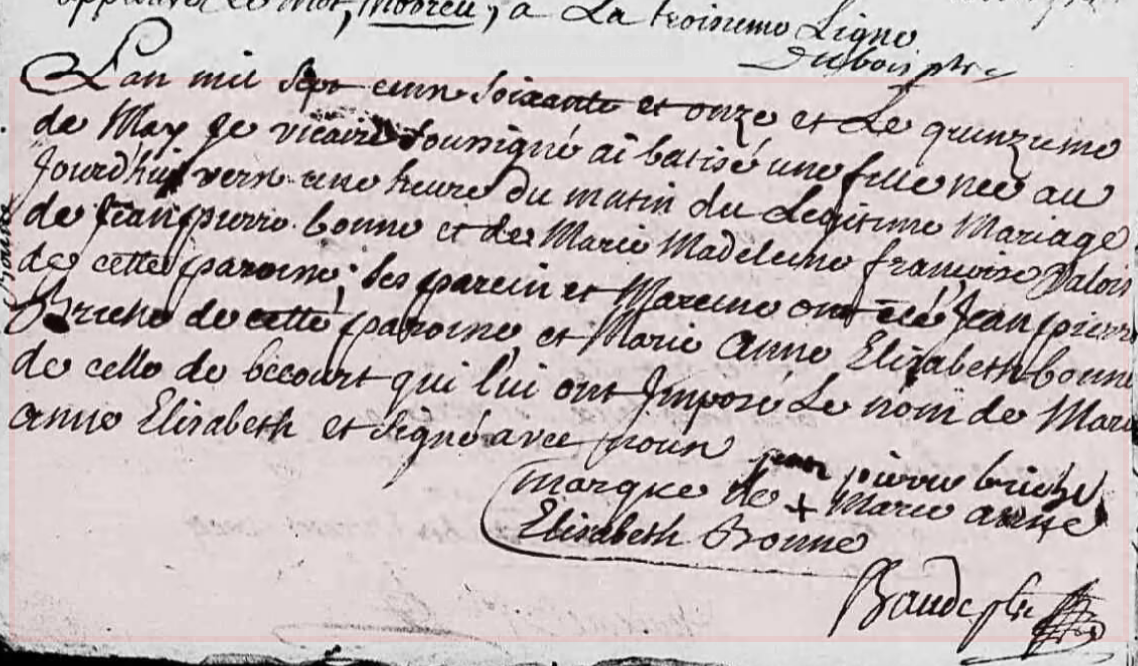 approuvé le mot, Mooreu, à La troisieme Ligne
Dubois ptre
L'an mil sept cens soixante et onze et Le quinzieme
de May je vicaire soussigné ai batisé une fille née au
Jourd'hui vers une heure du matin du Legitime Mariage
de Jean pierre bonne et de Marie Madeleine françoise Valois
de cette paroisse; ses parein et Mareine ont été Jean pierre
Briche de cette paroisse et Marie Anne Elisabeth bonne
de celle de becourt qui lui ont Imposé Le nom de Marie
anne Elisabeth et signé avec nous
jean pierre briche
marque de + Marie anne
Elisabeth Bonne
Baude ptre
Bonne